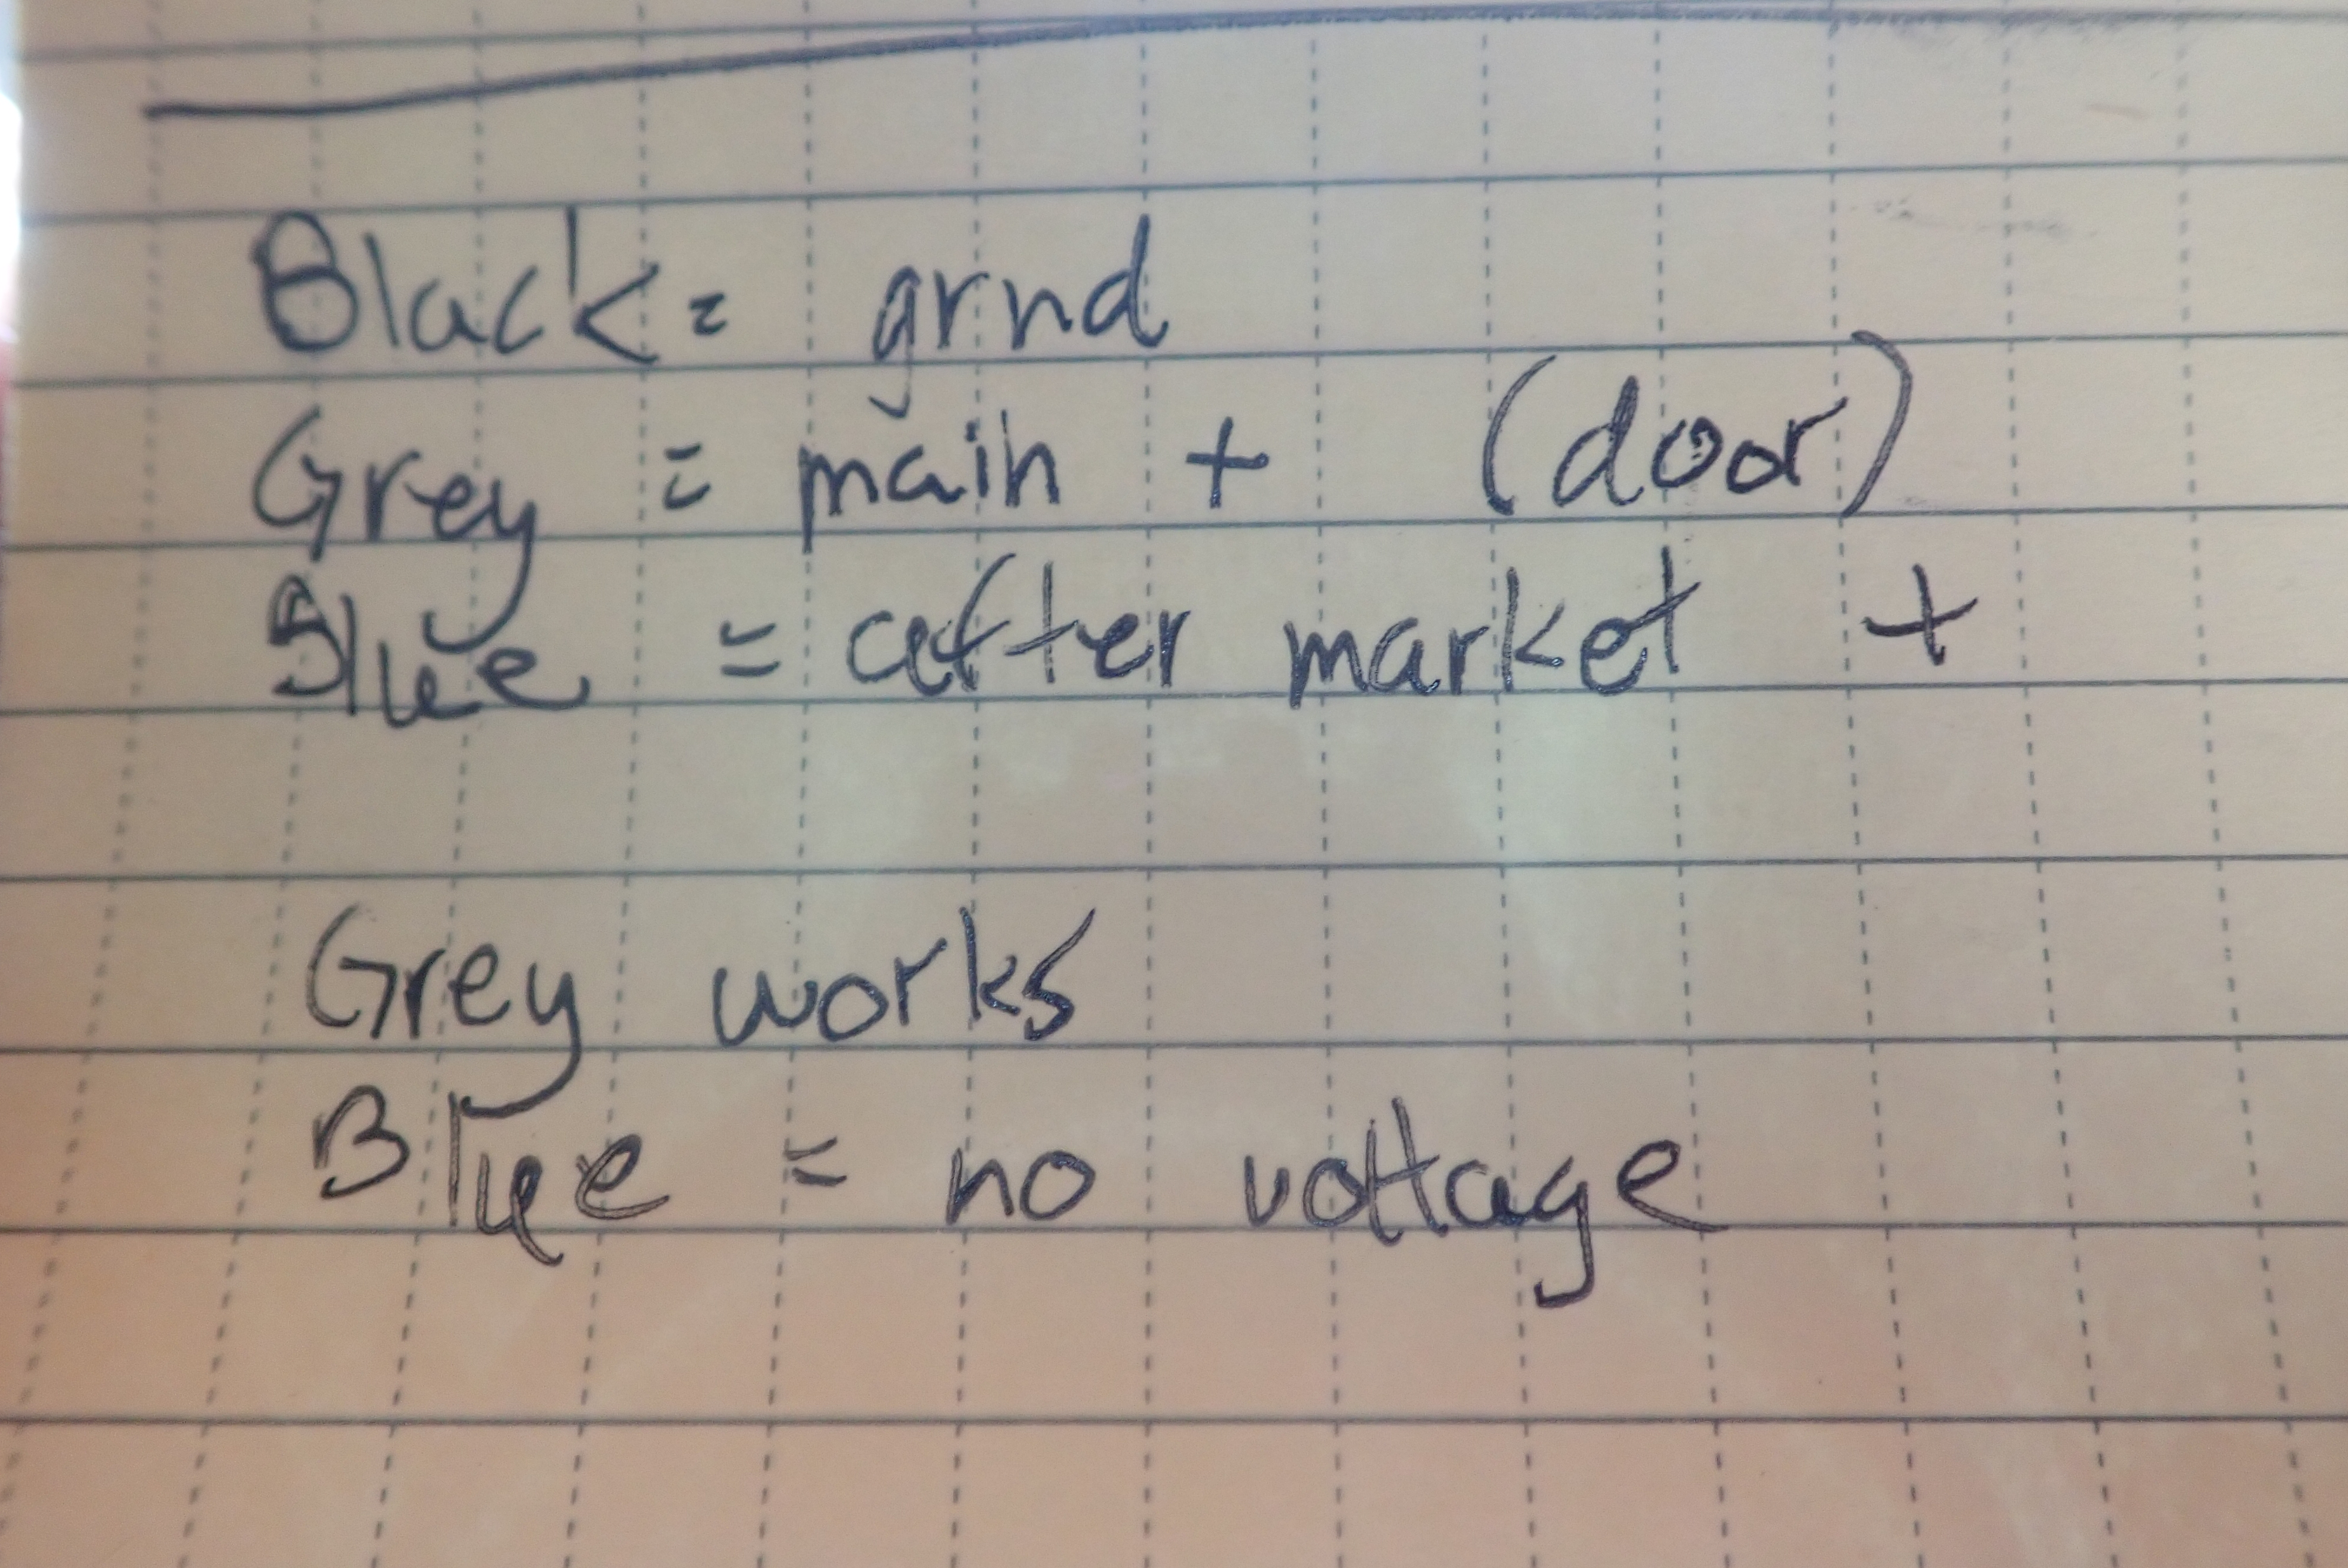 Black = grnd
Grey = main + (door)
Blue = after market +
Grey works
Blue = no voltage